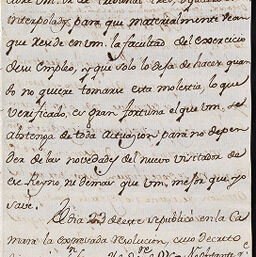 interpolado, para que materialmente vean
que reside en Vm. la facultad del exercicio
de su empleo, y que solo lo dexa de hacer quan
do no quiere tomarse esta molestia, lo que
verificado, es gran fortuna el que Vm. se
abstenga de toda actuacion para no depen
der de las novedades del nuevo visitador de
ese Reyno ni demas que Vm. mejor que yo
save.
El dia 23 de este se publicó en la Ca
mara la expresada resolucion, cuio decreto